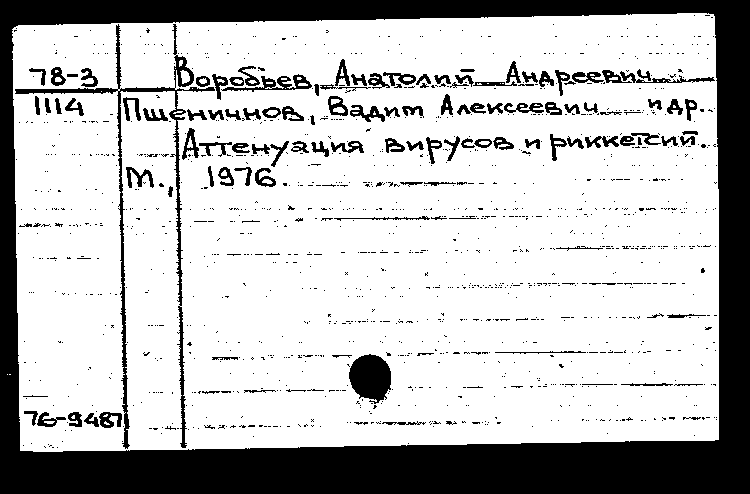 78-3 Воробьев, Анатолий Андреевич
1114 Пшеничнов, Вадим Алексеевич и др.
Аттенуация вирусов и риккетсий.
М., 1976.
76-9487